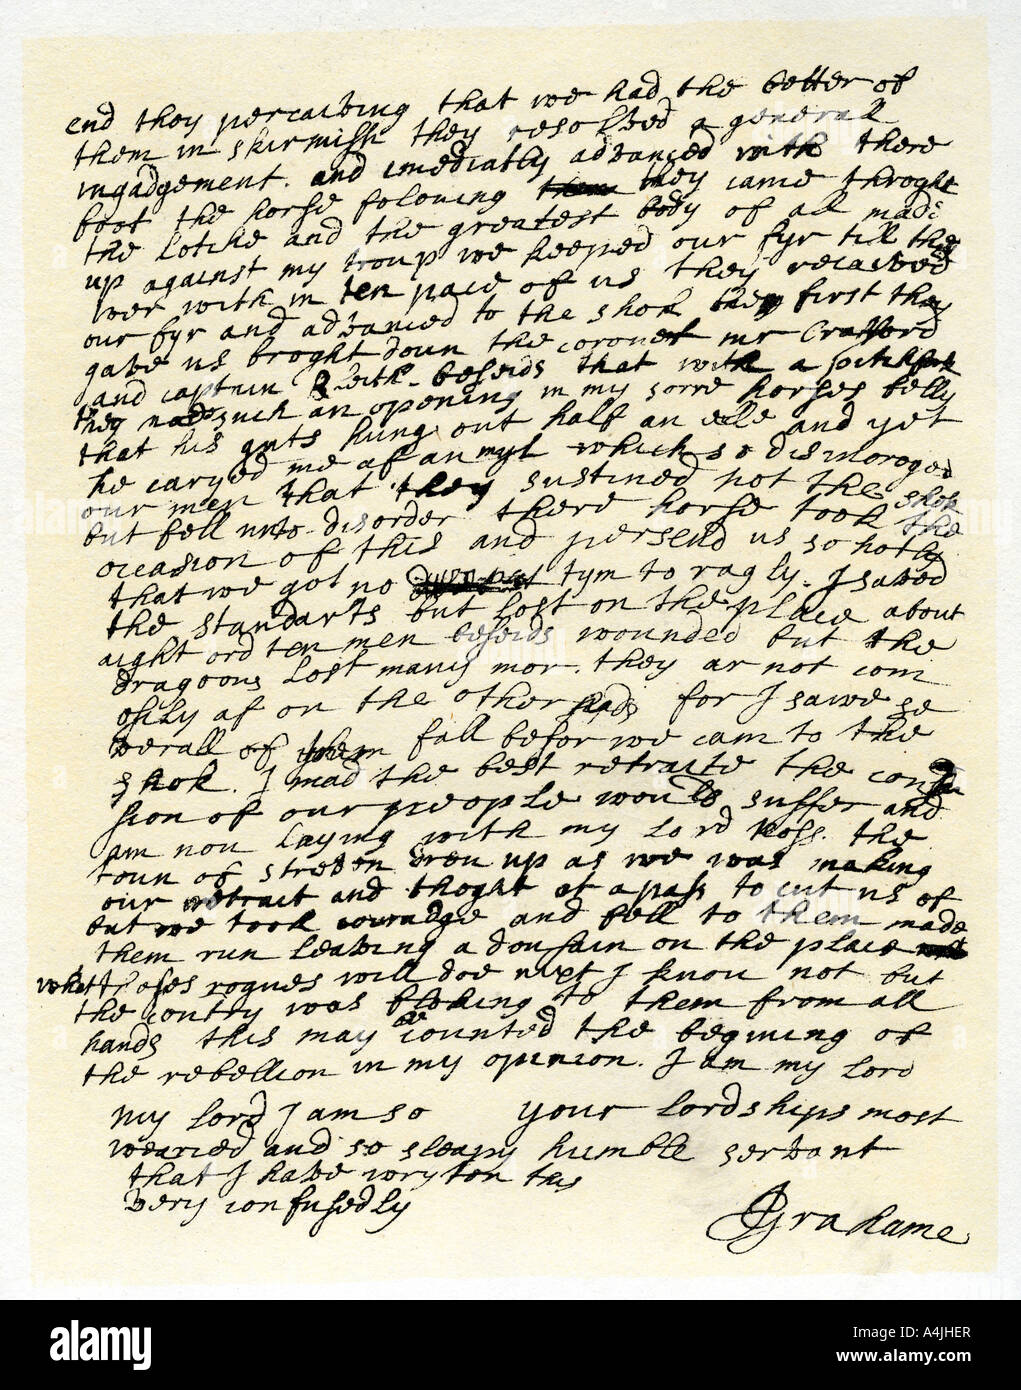 end they percaiving that we had the better of
them in skirmish they resolved a generall
ingadgement. and imediatly advanced with there
foot the horse folouing they came throght
the lotche and the greatest body of all made
up against my troup we keeped our fyr till they
wer with in ten pace of us they recaived
our fyr and advanced to the shok they first they
gave us broght doun the coronet mr Crafford
and captin Bleith. beseids that with a pitchfork
they made such an opening in my sorre horses belly
that his guts hung out half an elle and yet
he caryed me af an myl which so discoroged
our men that they sustined not the shok
but fell unto disorder there horse took the
occasion of this and persend us so hotly
that we got no tym to ragly. I saved
the standarts but lost on the place about
aight ord ten men beseids wounded but the
dragoons lost many mor. they ar not com
esily af on the other side for I sawe se
verall of them fall befor we cam to the
shok. I mad the best retraite the confu
sion of our people would suffer and
am nou laying with my lord Ross. the
toun of streven dreu up as we was making
our retrait and thoght of a pass to cut us of
but we took couradge and fell to them made
them run leaving a dousain on the place
what thoses rogues will doe nixt I knou not but
the contry was floking to them from all
hands this may be counted the begining of
the rebellion in my opinion. I am my lord
my lord I am so your lordships most
wearied and so sleapy humble servant
that I have wryton this
very confusedly
JGrahame
alamy
Image ID: A4JHER
www.alamy.com